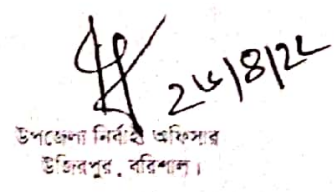 ২৮/৪/২২
উপজেলা নির্বাহী অফিসার
উজিরপুর, বরিশাল।